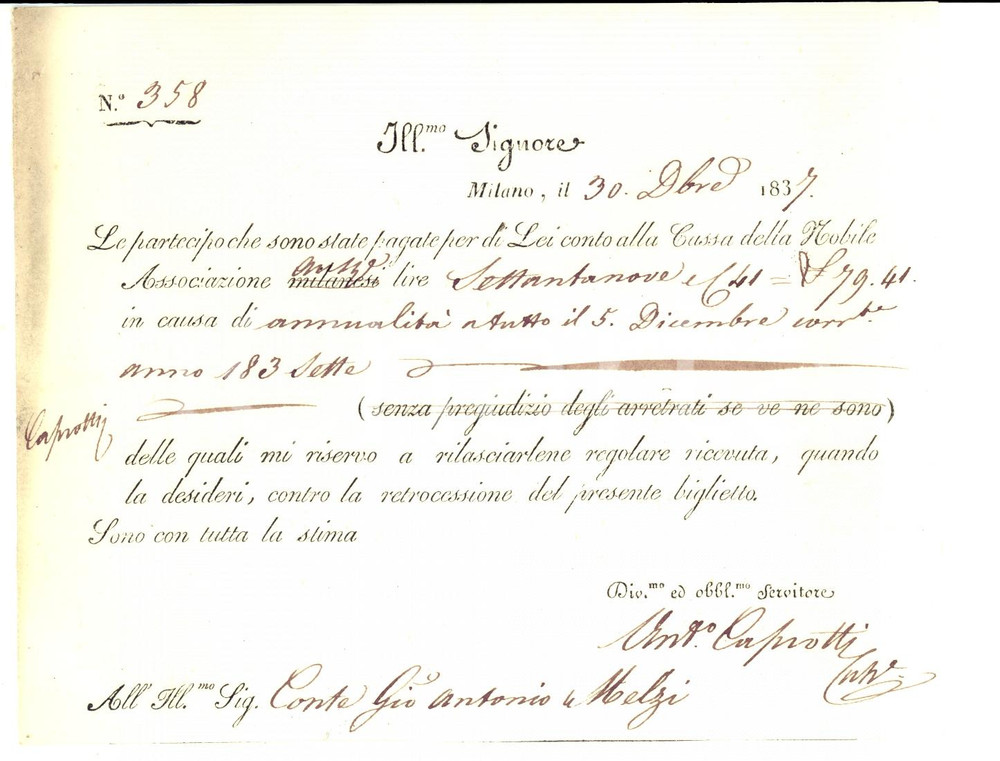 N.º 358
Ill.mo Signore
Milano, il 30. Dbre 1837.
Le partecipo che sono state pagate per di Lei conto alla Cassa della Nobile
Associazione milanesi lire Settantanove e C 41 = 79.41.
in causa di annualità a tutto il 5. Dicembre corr.te
anno 183 Sette
Caprotti
(senza pregiudizio degli arretrati se ve ne sono)
delle quali mi riservo a rilasciarlene regolare ricevuta, quando
la desideri, contro la retrocessione del presente biglietto.
Sono con tutta la stima
Div.mo ed obbl.mo Servitore
Ant.o Caprotti
All' Ill.mo Sig. Conte Gio Antonio Melzi